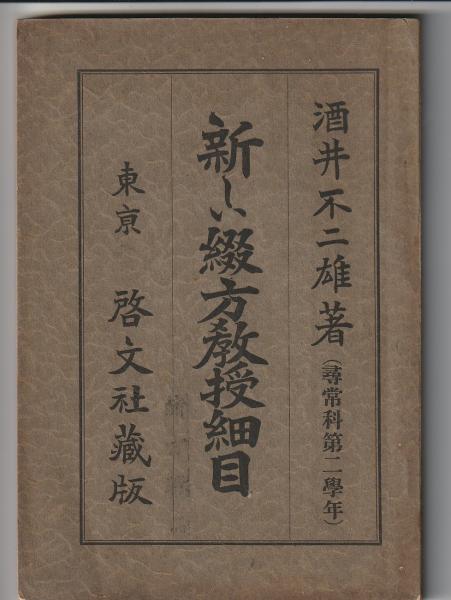 酒井不二雄著（尋常科第二學年）
新しい綴方教授細目
東京 啓文社藏版